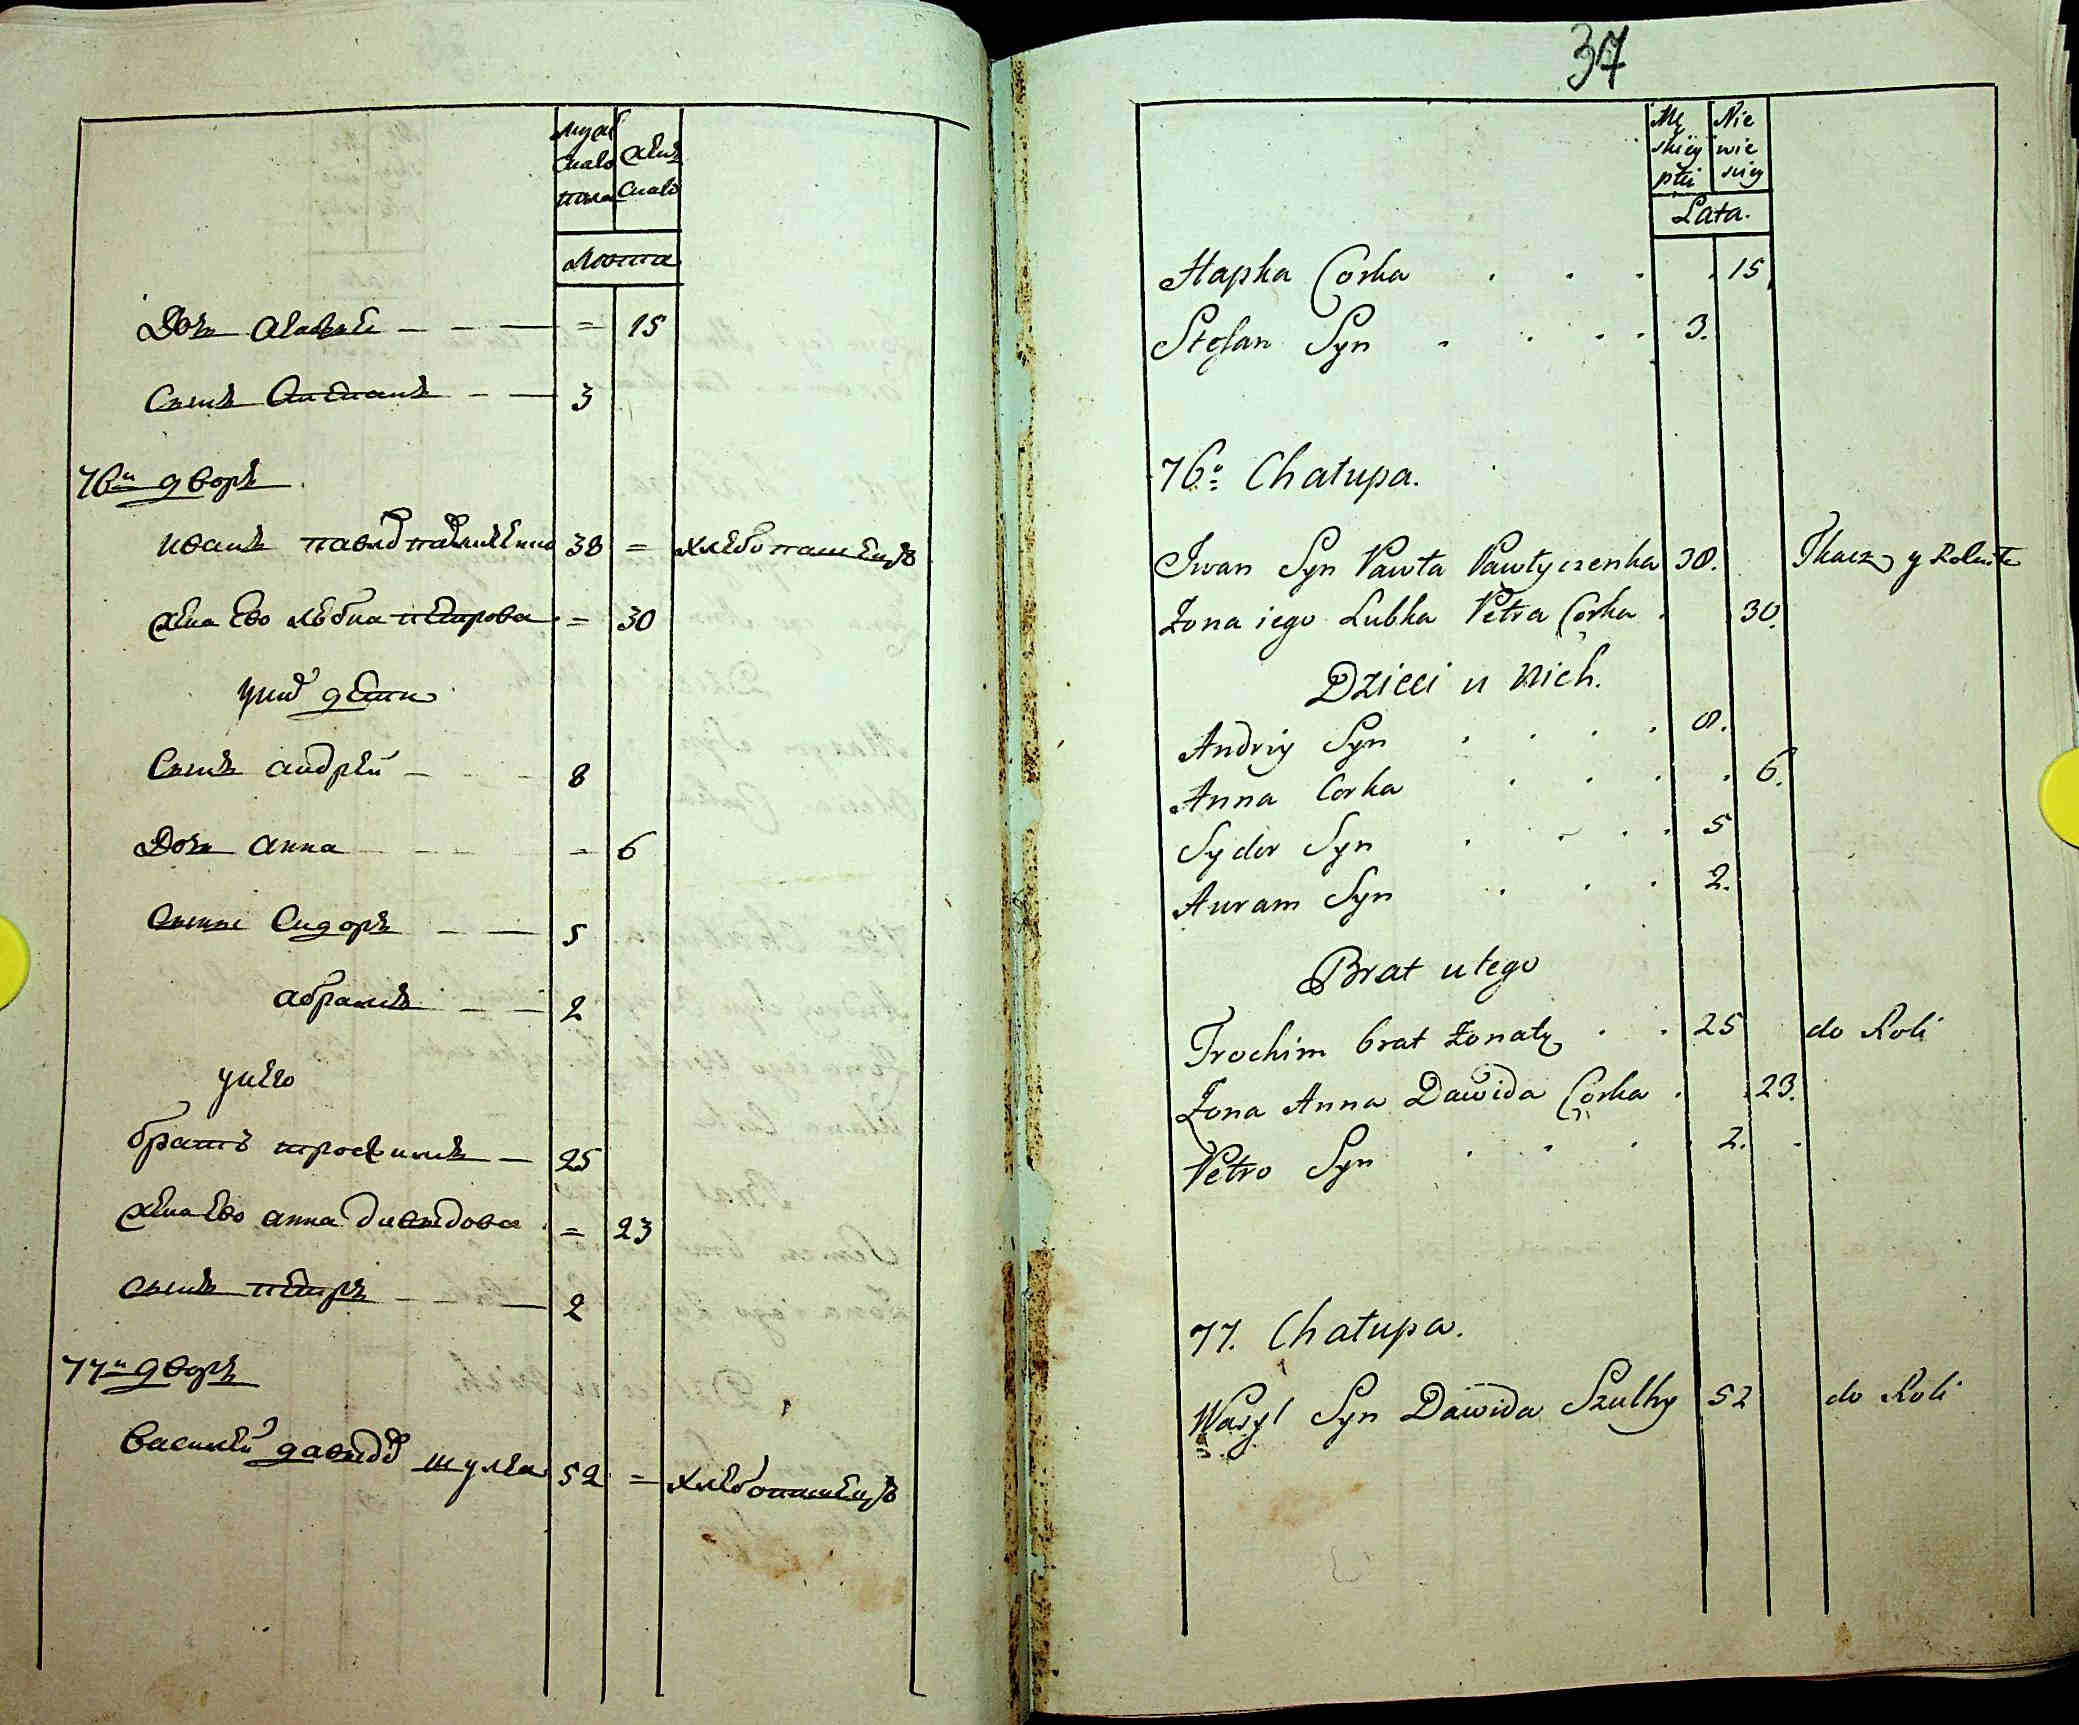 Мужеска пола
женска
Лѣта
Дочь Агафія — — — = 15
Сынъ Степанъ — — 3
76й дворъ
Иванъ Павлов Павличенко 38 = хлебопашецъ
Жена Ево Любка Петрова = 30
у них дети
Сынъ андрей — 8
Дочь анна = 6
Сынъ Сидоръ — — 5
абрамъ — — 2
у нево
братъ трофимъ — 25
Жена Ево анна давыдова = 23
сынъ петръ — — — 2
77й дворъ
Василей давыдов шулка 52 = хлебопашецъ
37
Męskiey płci
Niewieściey
Lata.
Hapka Corka . . . . 15
Stefan Syn . . . . 3.
76o Chałupa.
Iwan Syn Pawła Pawłyczenka 38. Tkacz y Rolnik
Żona iego Lubka Petra Corka . 30.
Dzieci u nich.
Andriy Syn . . . . 8.
Anna Corka . . . . 6.
Sydor Syn . . . . 5
Auram Syn . . . 2.
Brat u tego
Trochim brat żonaty . . 25 do Roli
Żona Anna Dawida Corka . . 23.
Petro Syn . . . . 2. .
77. Chałupa.
Wasyl Syn Dawida Szulhy 52 do Roli